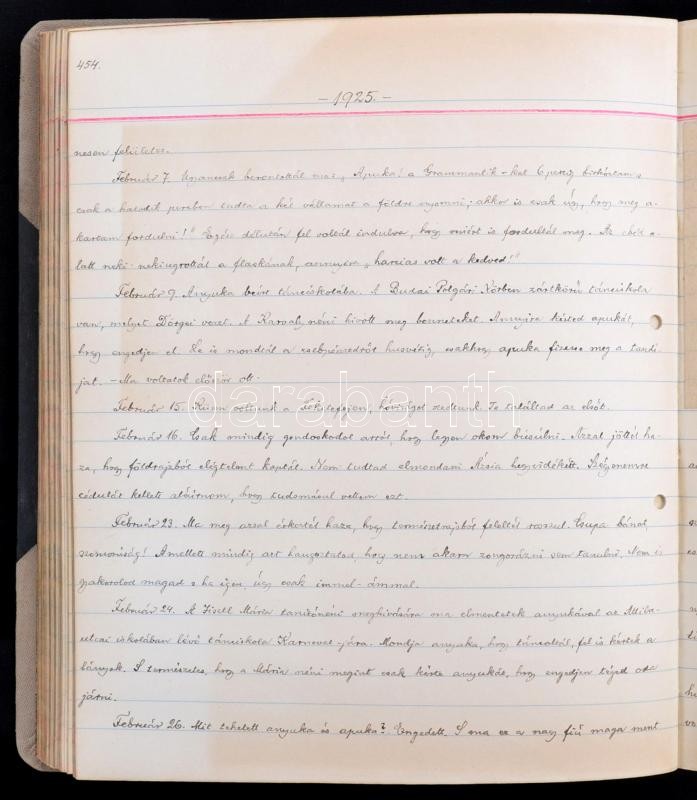 454.
- 1925. -
nesen felvételre.
Február 7. Ugyancsak berontottál ma: „Apuka! a Grammantik-kal 6 percig birkóztam s
csak a hatodik percben tudta a két vállamat a földre nyomni; akkor is csak úgy, hogy meg a-
kartam fordulni!" Egész délután fel voltál indulva, hogy miért is fordultál meg. Az ebéd a-
latt neki-nekiugrottál a flaskának, annyira „harcias volt a kedved!"
Február 9. Anyuka beírt tánciskolába. A Budai Polgári Körben zártkörű tánciskola
van, melyet Dörgei vezet. A Károly néni hívott meg benneteket. Annyira kérted apukát,
hogy engedjen el. Le is mondtál a zsebpénzedről husvétig, csakhogy apuka fizesse meg a tandí-
jat. - Ma voltatok először ott.
Február 15. Kuan voltunk a Feketefejen, hóvirágot szedtünk. Te találtad az elsőt.
Február 16. Csak mindig gondoskodol arról, hogy legyen okom búsulni. Azzal jöttél ha-
za, hogy földrajzból elégtelent kaptál. Nem tudtad elmondani Ázsia hegyvidékeit. Szégyenemre
cédulát kellett aláírnom, hogy tudomásul vettem ezt.
Február 23. Ma meg azzal érkeztél haza, hogy természetrajzból feleltél rosszul. Csupa bánat,
szomorúság! Amellett mindig azt hangoztatod, hogy nem akarsz zongorázni sem tanulni. Nem is
gyakorolod magad s ha igen, úgy csak immel-ámmal.
Február 24. A Zisell Mária tanítónéni meghívására ma elmentetek anyukával az Attila-
utcai iskolában lévő tánciskola Karneval-jára. Mondja anyuka, hogy táncoltál, fel is kértek a
lányok. S természetes, hogy a Mária néni megint csak kérte anyukát, hogy engedjen téged oda
járni.
Február 26. Mit tehetett anyuka és apuka? Engedett. S ma ez a nagy fiú maga ment
darabanth